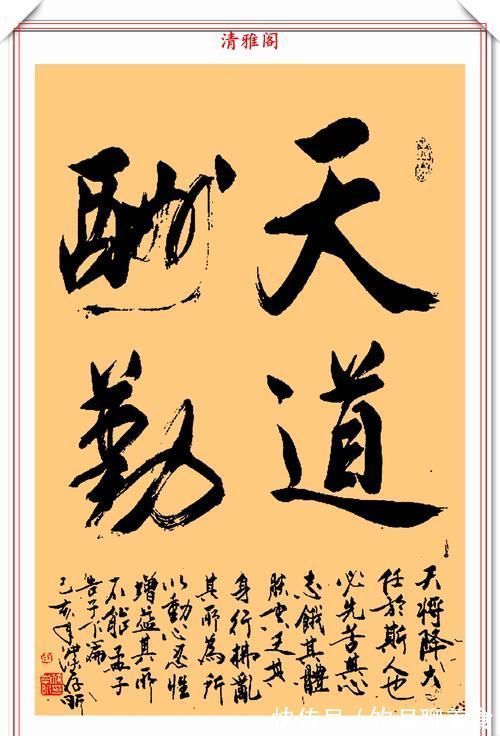 清雅阁
天道
酬勤
天将降大
任於斯人也
必先苦其心
志餓其體
膚空乏其
身行拂亂
其所為所
以動心忍性
增益其所
不能孟子
告子下篇
己亥年
快传号 /